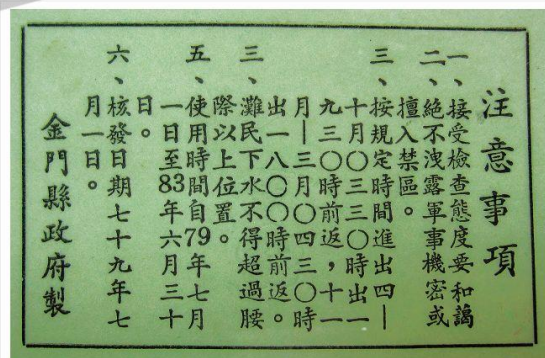 注意事項
一、接受檢查態度要和謁
二、絕不洩露軍事機密或
擅入禁區。
三、按規定時間進出四—
十月〇三三〇時出一
九三〇時前返，十一
月—三月〇四三〇時
出一八〇〇時前返。
三、灘民下水不得超過腰
際以上位置。
五、使用時間自79年七月
一日至83年六月三十
日。
六、核發日期七十九年七
月一日。
金門縣政府製